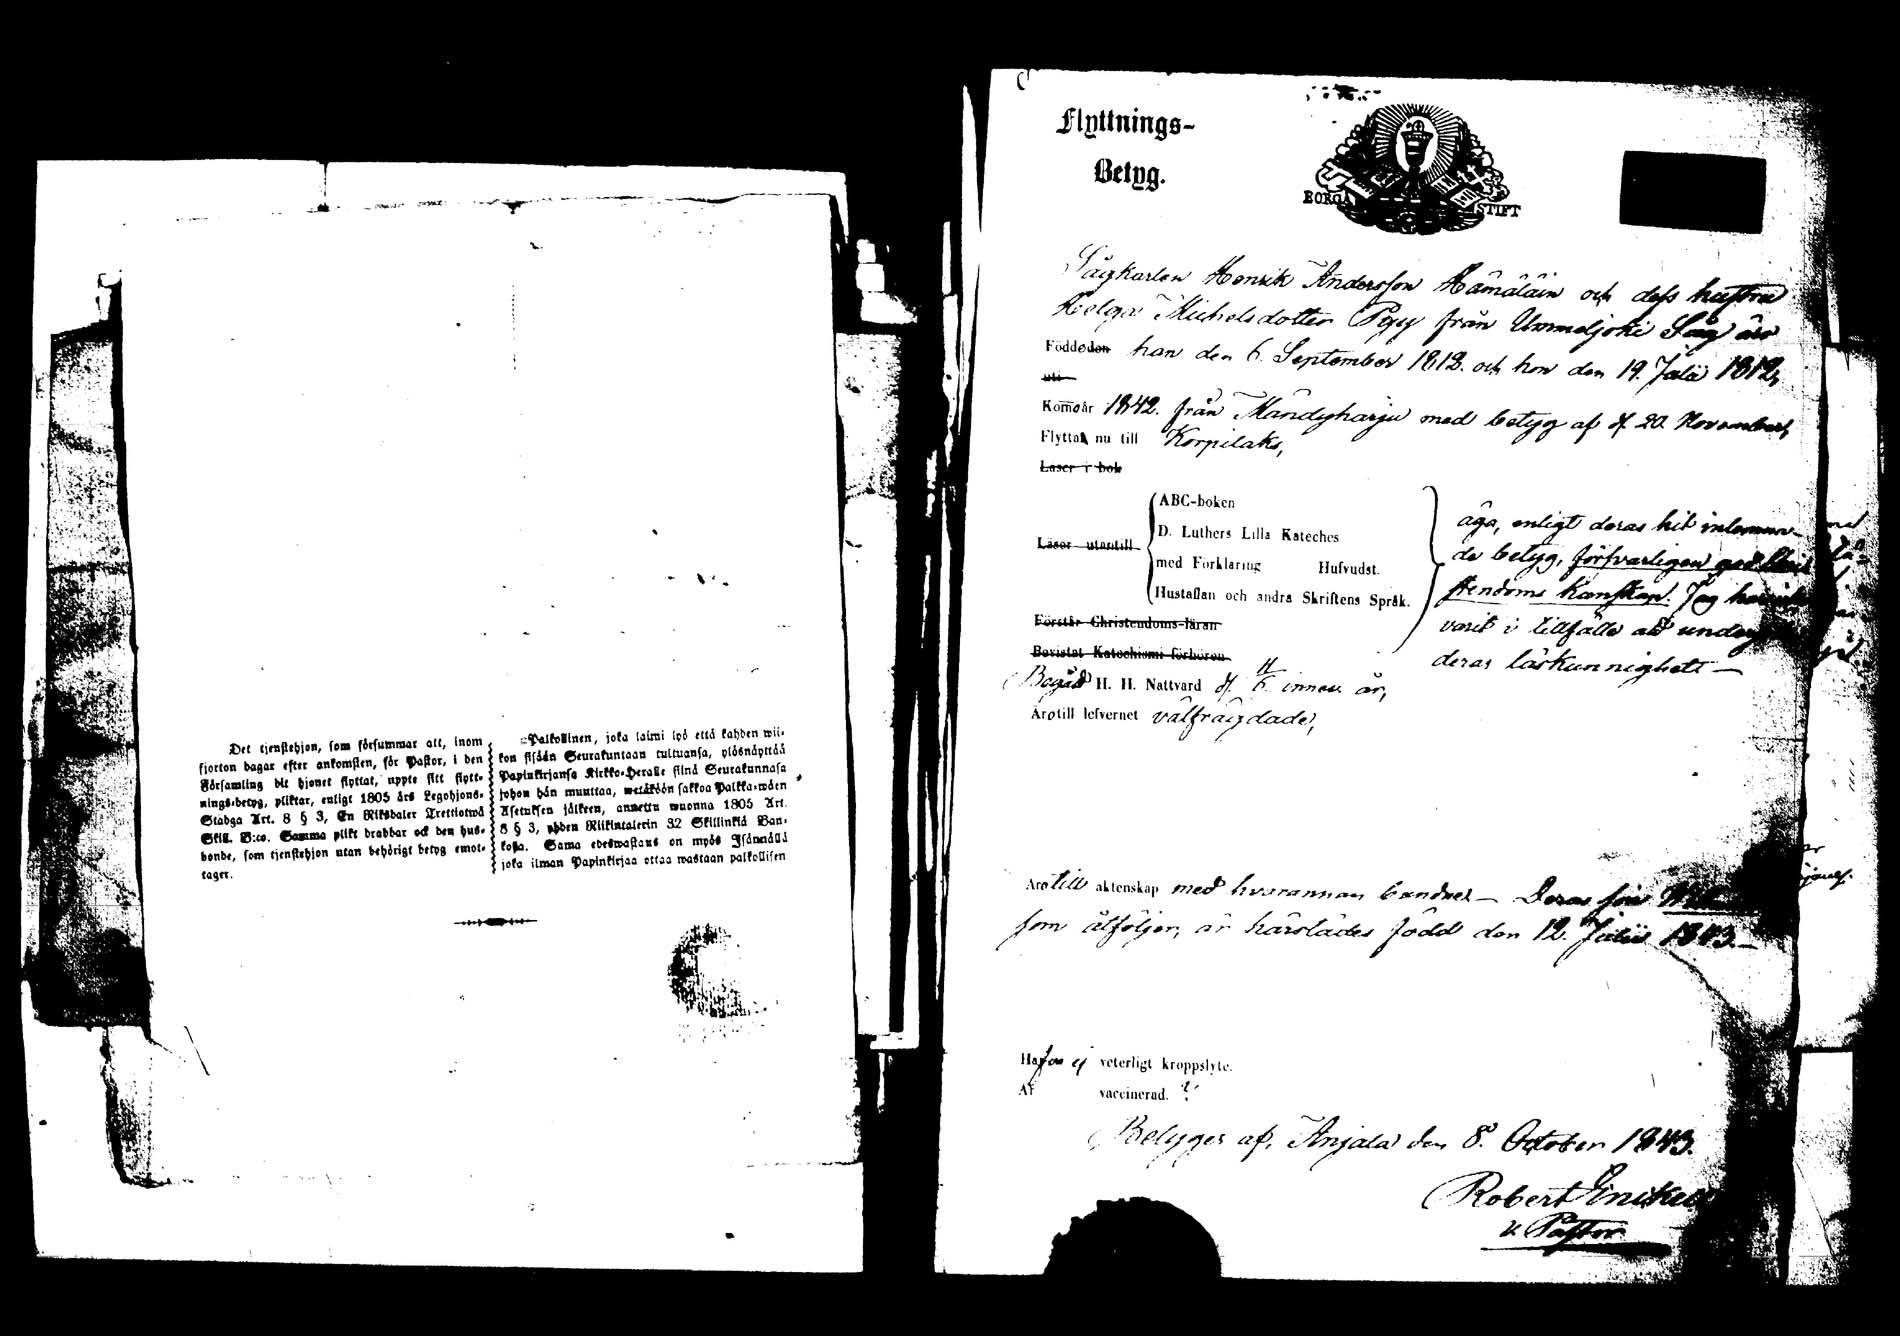 Det tjenstehjon, som försummar att, inom
fjorton dagar efter ankomsten, för Pastor, i den
Församling dit hjonet flyttat, uppte sitt flytt-
nings-betyg, pliktar, enligt 1805 års Legohjons-
Stadga Art. 8 § 3, En Riksdaler Trettiotwå
Skill. B:co. Samma plikt drabbar ock den hus-
bonde, som tjenstehjon utan behörigt betyg emot-
tager.
Palkollinen, joka laimi lyö että kahden wii-
kon sisään Seurakuntaan tultuansa, ylösnäyttää
Papinkirjansa Kirkko-Herralle siinä Seurakunnasa
johon hän muuttaa, wetäköön sakkoa Palkka-wäen
Asetuksen jälkeen, annettu wuonna 1805 Art.
8 § 3, yhden Riikintalerin 32 Skillinkiä Ban-
kossa. Sama edeswastaus on myös Isännällä
joka ilman Papinkirjaa ottaa wastaan palkollisen
Flyttnings-
Betyg.
BORGÅ STIFT
Sågkarlen Henrik Andersson Hämäläin och dess hustru
Helga Michelsdotter Pyy från Ummeljoki Såg äro
Födde den han den 6. September 1812. och hon den 19. Julii 1812,
uti
Komo år 1842. från Mändyharju med betyg af d. 20. November,
Flytta nu till Korpilaks,
Läser i bok
Läser utantill
ABC-boken
D. Luthers Lilla Kateches
med Förklaring Hufvudst.
Hustaflan och andra Skriftens Språk.
Förstår Christendoms-läran
Bevistat Katechismi förhören
äga, enligt deras hit inlemna-
de betyg, försvarligen god Chri-
stendoms kunskap. Jag har
varit i tillfälle att
deras läskunnighet —
Begått H. H. Nattvard d. 6. innev. år,
Äro till lefvernet välfrägdade,
Äro till äktenskap med hvarannan bundne — Deras son
som åtföljer, är härstädes född den 12. Julii 1843. —
Hafva ej veterligt kroppslyte.
Är vaccinerad. ?
Betyges af, Anjala den 8. October 1843.
Robert
v. Pastor